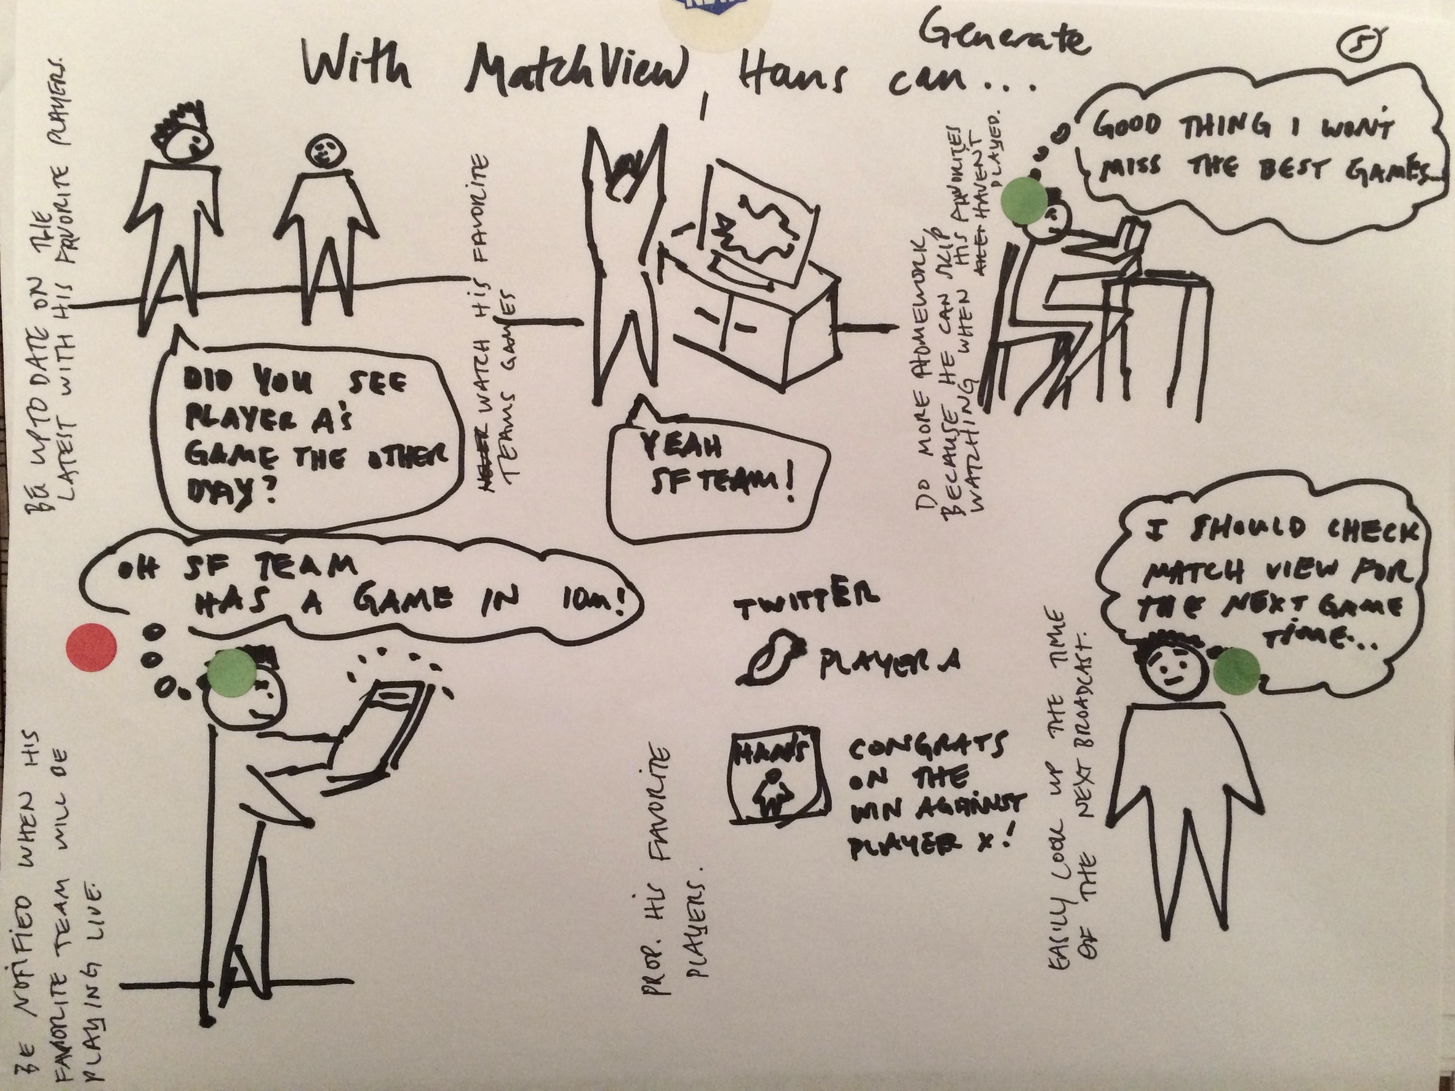 Generate
5
With MatchView Hans can...
BE UP TO DATE ON THE
LATEST WITH HIS FAVORITE PLAYERS.
DID YOU SEE
PLAYER A's
GAME THE OTHER
DAY?
WATCH HIS FAVORITE
TEAMS GAMES
YEAH
SF TEAM!
DO MORE HOMEWORK,
BECAUSE HE CAN SKIP
WATCHING WHEN HIS FAVORITES
HAVENT
PLAYED.
GOOD THING I WON'T
MISS THE BEST GAMES...
BE NOTIFIED WHEN HIS
FAVORITE TEAM WILL BE
PLAYING LIVE.
OH SF TEAM
HAS A GAME IN 10m!
PROP. HIS FAVORITE
PLAYERS.
TWITTER
PLAYER A
HANS
CONGRATS
ON THE
WIN AGAINST
PLAYER X!
EASILY LOOK UP THE TIME
OF THE NEXT BROADCAST.
I SHOULD CHECK
MATCH VIEW FOR
THE NEXT GAME
TIME...